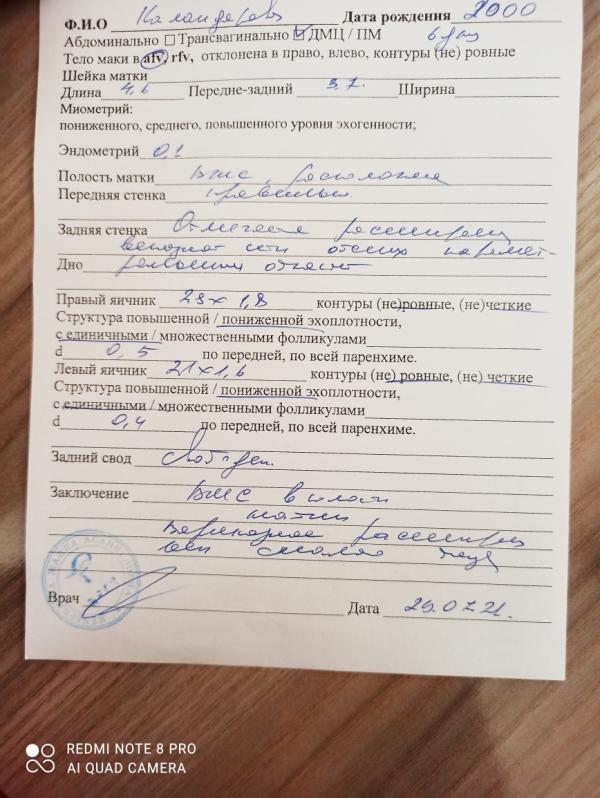 Ф.И.О Каландарова Дата рождения 2000
Абдоминально Трансвагинально ДМЦ / ПМ
Тело маки в afv, rfv, отклонена в право, влево, контуры (не) ровные
Шейка матки
Длина 4,6 Передне-задний 3,7 Ширина
Миометрий:
пониженного, среднего, повышенного уровня эхогенности;
Эндометрий 0,1
Полость матки ВМС расположена
Передняя стенка правильно
Задняя стенка Отмечается расширение
венозной сети
Дно
Правый яичник 29х1,8 контуры (не)ровные, (не)четкие
Структура повышенной / пониженной эхоплотности,
с единичными / множественными фолликулами
d 0,5 по передней, по всей паренхиме.
Левый яичник 21х1,6 контуры (не) ровные, (не) четкие
Структура повышенной / пониженной эхоплотности,
с единичными / множественными фолликулами
d 0,4 по передней, по всей паренхиме.
Задний свод свободен.
Заключение ВМС в полости
матки
Варикозное расширение
вен малого таза
Врач Дата 29.07.21.
REDMI NOTE 8 PRO
AI QUAD CAMERA